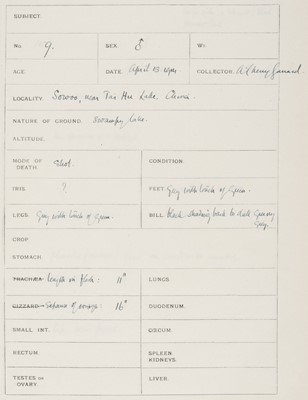 SUBJECT.
No. 9. SEX. ♂ Wt.
AGE. DATE. April 13. COLLECTOR. A.
LOCALITY. Soochow, near Tai Hu Lake. China.
NATURE OF GROUND. Swampy lake.
ALTITUDE.
MODE OF DEATH. Shot. CONDITION.
IRIS. ? FEET. Grey with tinch of green.
LEGS. Grey with tinch of green. BILL. black shading back to dark
grey.
CROP.
STOMACH.
TRACHÆA. length in flesh: 11" LUNGS.
GIZZARD. Expanse of wings: 16" DUODENUM.
SMALL INT. CŒCUM.
RECTUM. SPLEEN.
KIDNEYS.
TESTES OR OVARY. LIVER.